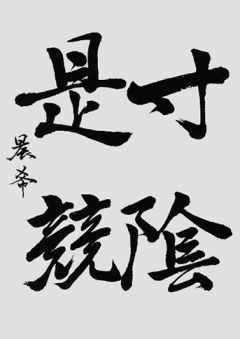 寸陰
是競
晨希